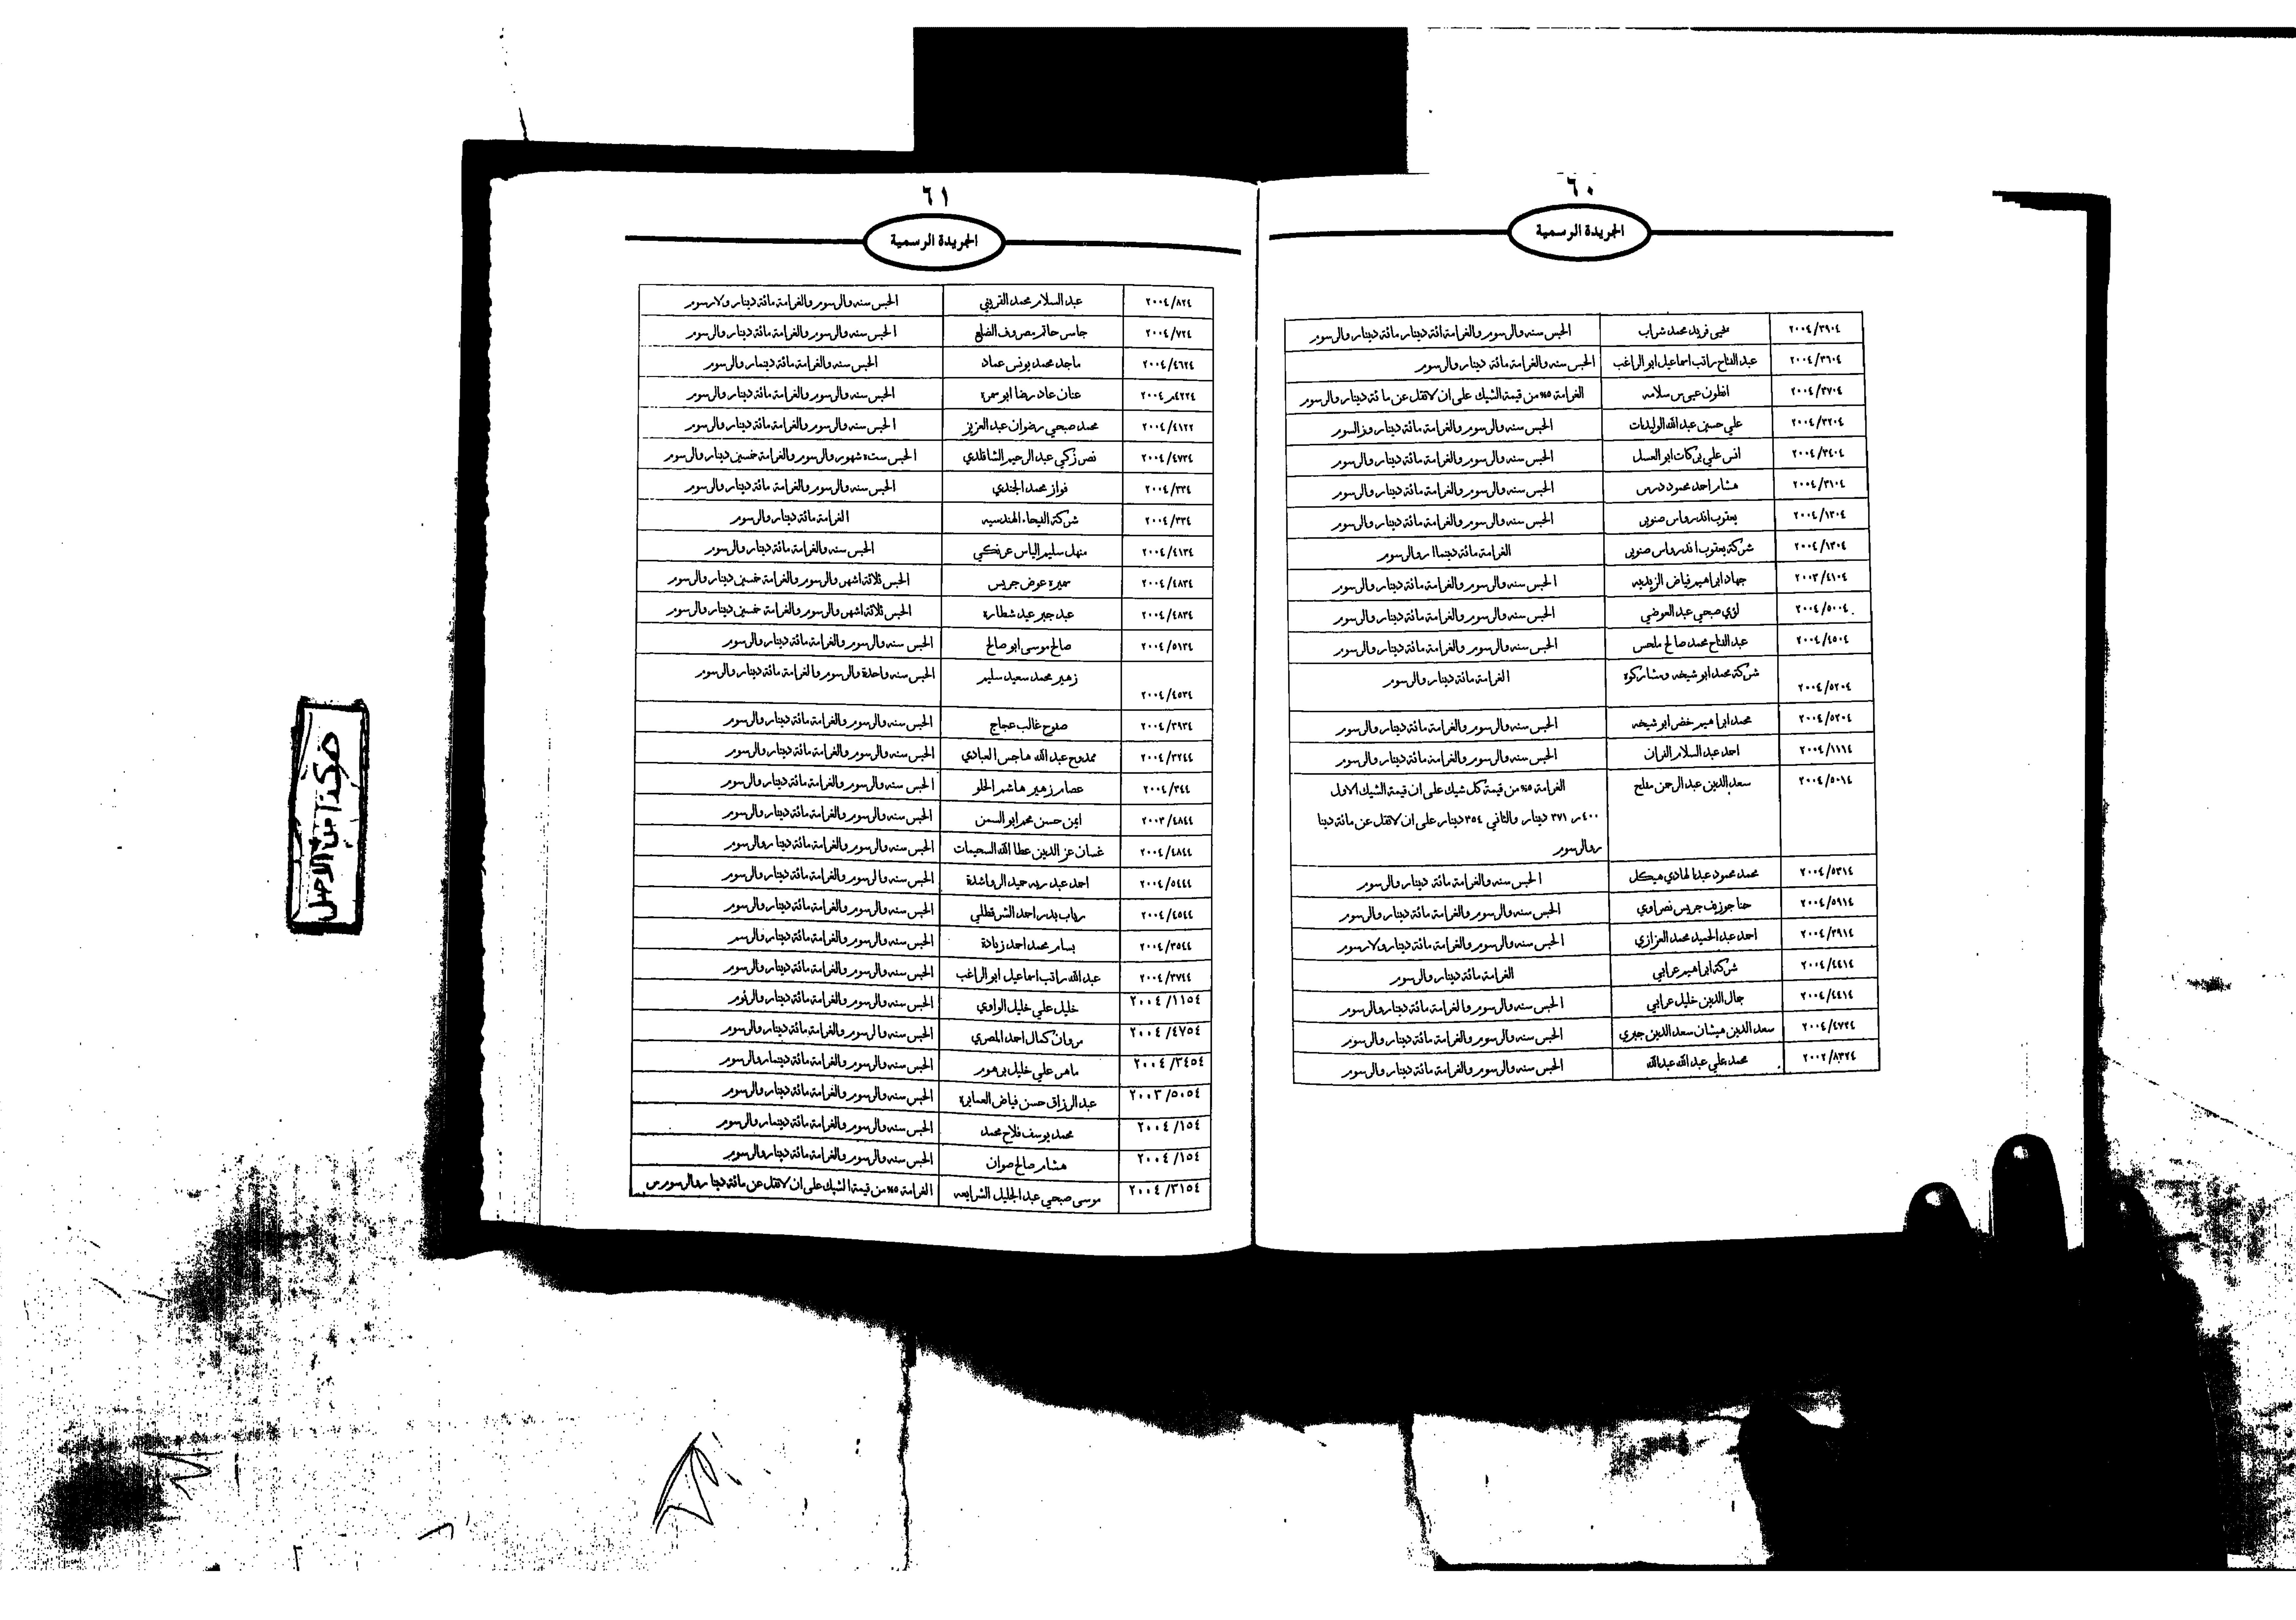 ٦٠
الجريدة الرسمية
٢٠٠٤/٣٩٠٤ يحيى فريد محمد شراب الحبس سنه والرسوم والغرامة ائة دينار مائة دينار والرسوم
٢٠٠٤/٣٦٠٤ عبد الفتاح راتب اسماعيل ابو الراغب الحبس سنه والغرامة مائة دينار والرسوم
٢٠٠٤/٣٧٠٤ انطون عيسى سلامه الغرامة ٥% من قيمة الشيك على ان لاتقل عن مائة دينار والرسوم
٢٠٠٤/٣٢٠٤ علي حسين عبد الله الوليدات الحبس سنه والرسوم والغرامة مائة دينار والرسوم
٢٠٠٤/٣٤٠٤ انس علي بركات ابو العسل الحبس سنه والرسوم والغرامة مائة دينار والرسوم
٢٠٠٤/٣١٠٤ هشام احمد محمود درس الحبس سنه والرسوم والغرامة مائة دينار والرسوم
٢٠٠٤/١٣٠٤ يعقوب اندرواس صنوبى الحبس سنه والرسوم والغرامة مائة دينار والرسوم
٢٠٠٤/١٣٠٤ شركة يعقوب اندرواس صنوبى الغرامة مائة دينماا روالرسوم
٢٠٠٣/٤١٠٤ جهاد ابراهيم فياض الزيديه الحبس سنه والرسوم والغرامة مائة دينار والرسوم
٢٠٠٤/٥٠٠٤ لؤي صبحي عبد العوضي الحبس سنه والرسوم والغرامة مائة دينار والرسوم
٢٠٠٤/٤٥٠٤ عبد الفتاح محمد صالح ملحس الحبس سنه والرسوم والغرامة مائة دينار والرسوم
٢٠٠٤/٥٢٠٤ شركة محمد ابو شيخه ومشاركوه الغرامة مائة دينار والرسوم
٢٠٠٤/٥٢٠٤ محمد ابراهيم خضر ابو شيخه الحبس سنه والرسوم والغرامة مائة دينار والرسوم
٢٠٠٤/١١١٤ احمد عبد السلام الفران الحبس سنه والرسوم والغرامة مائة دينار والرسوم
٢٠٠٤/٥٠١٤ سعد الدين عبد الرحمن مفلح الغرامة ٥% من قيمة كل شيك على ان قيمة الشيك الاول
٤٠٠ر ٣٧١ دينار والثاني ٣٥٤ دينار على ان لاتقل عن مائة دينا
روالرسوم
٢٠٠٤/٥٣١٤ محمد محمود عبد الهادي هيكل الحبس سنه والغرامة مائة دينار والرسوم
٢٠٠٤/٥٩١٤ حنا جوزيف جريس نصراوي الحبس سنه والرسوم والغرامة مائة دينار والرسوم
٢٠٠٤/٣٩١٤ احمد عبد الحميد محمد العزازي الحبس سنه والرسوم والغرامة مائة دينار ولارسوم
٢٠٠٤/٤٤١٤ شركة ابراهيم عرابي الغرامة مائة دينار والرسوم
٢٠٠٤/٤٤١٤ جمال الدين خليل عرابي الحبس سنه والرسوم والغرامة مائة دينار والرسوم
٢٠٠٤/٤٧٢٤ سعد الدين ميشان سعد الدين جبري الحبس سنه والرسوم والغرامة مائة دينار والرسوم
٢٠٠٢/٨٣٢٤ محمد علي عبد الله عبد الله الحبس سنه والرسوم والغرامة مائة دينار والرسوم
٦١
الجريدة الرسمية
٢٠٠٤/٨٢٤ عبد السلام محمد القريني الحبس سنه والرسوم والغرامة مائة دينار ولارسوم
٢٠٠٤/٧٢٤ جاسر حاتم معروف الضلع الحبس سنه والرسوم والغرامة مائة دينار والرسوم
٢٠٠٤/٤٦٢٤ ماجد محمد يونس عماد الحبس سنه والغرامة مائة دينمار والرسوم
٤٢٢٤ر٢٠٠٤ عنان عاد رضا ابو سمره الحبس سنه والرسوم والغرامة مائة دينار والرسوم
٢٠٠٤/٤١٢٢ محمد صبحي رضوان عبد العزيز الحبس سنه والرسوم والغرامة مائة دينار والرسوم
٢٠٠٤/٤٧٣٤ نصر زكي عبد الرحيم الشاقلدي الحبس ستة شهور والرسوم والغرامة خمسين دينار والرسوم
٢٠٠٤/٣٣٤ فواز محمد الجندي الحبس سنه والرسوم والغرامة مائة دينار والرسوم
٢٠٠٤/٣٣٤ شركة الفيحاء الهندسيه الغرامة مائة دينار والرسوم
٢٠٠٤/٤١٣٤ منهل سليم الياس عرنكي الحبس سنه والغرامة مائة دينار والرسوم
٢٠٠٤/٤٨٣٤ سميره عوض جريس الحبس ثلاثة اشهر والرسوم والغرامة خمسين دينار والرسوم
٢٠٠٤/٤٨٣٤ عبد جبر عيد شطاره الحبس ثلاثة اشهر والرسوم والغرامة خمسين دينار والرسوم
٢٠٠٤/٥١٣٤ صالح موسى ابو صالح الحبس سنه والرسوم والغرامة مائة دينار والرسوم
٢٠٠٤/٤٥٣٤ زهير محمد سعيد سليم الحبس سنه واحدة والرسوم والغرامة مائة دينار والرسوم
٢٠٠٤/٣٩٣٤ صفوح غالب عجاج الحبس سنه والرسوم والغرامة مائة دينار والرسوم
٢٠٠٤/٣٢٤٤ ممدوح عبد الله هاجس العبادي الحبس سنه والرسوم والغرامة مائة دينار والرسوم
٢٠٠٤/٣٤٤ عصام زهير هاشم الحلو الحبس سنه والرسوم والغرامة مائة دينار والرسوم
٢٠٠٣/٤٨٤٤ ايمن حسن محمد ابو السمن الحبس سنه والرسوم والغرامة مائة دينار والرسوم
٢٠٠٤/٤٨٤٤ غسان عز الدين عطا الله السحيمات الحبس سنه والرسوم والغرامة مائة دينار والرسوم
٢٠٠٤/٥٤٤٤ احمد عبد ربه حميد الرواشدة الحبس سنه والرسوم والغرامة مائة دينار والرسوم
٢٠٠٤/٤٥٤٤ رباب بدر احمد الشرقطلي الحبس سنه والرسوم والغرامة مائة دينار والرسوم
٢٠٠٤/٣٥٤٤ بسام محمد احمد زيادة الحبس سنه والرسوم والغرامة مائة دينار والرسم
٢٠٠٤/٣٧٤٤ عبد الله راتب اسماعيل ابو الراغب الحبس سنه والرسوم والغرامة مائة دينار والرسوم
٢٠٠٤/١١٥٤ خليل علي خليل الراوي الحبس سنه والرسوم والغرامة مائة دينار
٢٠٠٤/٤٧٥٤ مروان كمال احمد المصري الحبس سنه والرسوم والغرامة مائة دينار والرسوم
٢٠٠٤/٣٤٥٤ ماهر علي خليل برهوم الحبس سنه والرسوم والغرامة مائة دينمار والرسوم
٢٠٠٣/٥٠٥٤ عبد الرزاق حسن فياض العمايره الحبس سنه والرسوم والغرامة مائة دينار والرسوم
٢٠٠٤/١٥٤ محمد يوسف فلاح محمد الحبس سنه والرسوم والغرامة مائة دينمار والرسوم
٢٠٠٤/١٥٤ هشام صالح صوان الحبس سنه والرسوم والغرامة مائة دينار والرسوم
٢٠٠٤/٣١٥٤ موسى صبحي عبد الجليل الشرايعه الغرامة ٥% من قيمة الشيك على ان لاتقل عن مائة دينا روالرسوم س
هكذا من الاصل